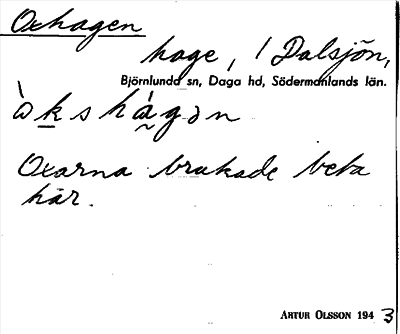 Oxhagen
hage, / Dalsjön,
Björnlunda sn, Daga hd, Södermanlands län.
òkshágən
Oxarna brukade beta
här.
ARTUR OLSSON 1943